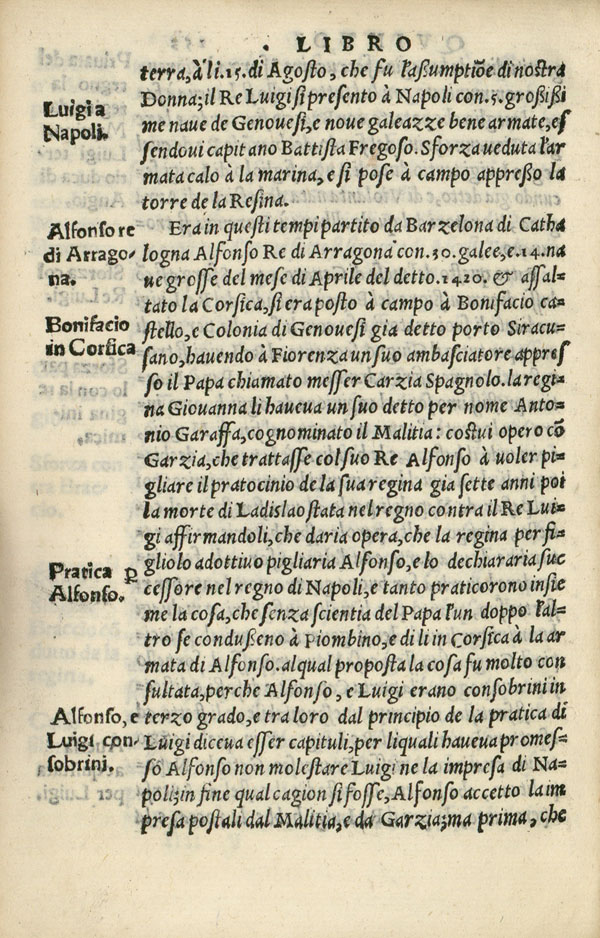 LIBRO
terra, à li. 15. di Agosto, che fu l'aßumptiõe di nostra
Luigi a
Napoli.
Donna; il Re Luigi si presento à Napoli con. 5. großißi
me naue de Genouesi, e noue galeazze bene armate, es
sendoui capitano Battista Fregoso. Sforza ueduta l'ar
mata calo à la marina, e si pose à campo appreßo la
torre de la Resina.
Alfonso re
di Arrago-
na.
Era in questi tempi partito da Barzelona di Catha
logna Alfonso Re di Arragona con. 30. galee, e. 14. na
ue grosse del mese di Aprile del detto. 1420. & assal-
tato la Corsica, si era posto à campo à Bonifacio ca-
Bonifacio
in Corsica
stello, e Colonia di Genouesi gia detto porto Siracu-
sano, hauendo à Fiorenza un suo ambasciatore appres
so il Papa chiamato messer Carzia Spagnolo. la regi-
na Giouanna li haueua un suo detto per nome Anto-
nio Garaffa, cognominato il Malitia: costui opero cõ
Garzia, che trattasse col suo Re Alfonso à uoler pi-
gliare il pratocinio de la sua regina gia sette anni poi
la morte di Ladislao stata nel regno contra il Re Lui-
gi affirmandoli, che daria opera, che la regina per fi-
Pratica ꝑ
Alfonso.
gliolo adottiuo pigliaria Alfonso, e lo dechiararia suc
cessore nel regno di Napoli, e tanto praticorono insie
me la cosa, che senza scientia del Papa l'un doppo l'al-
tro se condußeno à Piombino, e di li in Corsica à la ar
mata di Alfonso. al qual proposta la cosa fu molto con
sultata, perche Alfonso, e Luigi erano consobrini in
Alfonso, e
Luigi con-
sobrini.
terzo grado, e tra loro dal principio de la pratica di
Luigi diceua esser capituli, per li quali haueua promes-
so Alfonso non molestare Luigi ne la impresa di Na-
poli; in fine qual cagion si fosse, Alfonso accetto la im
presa postali dal Malitia, e da Garzia; ma prima, che